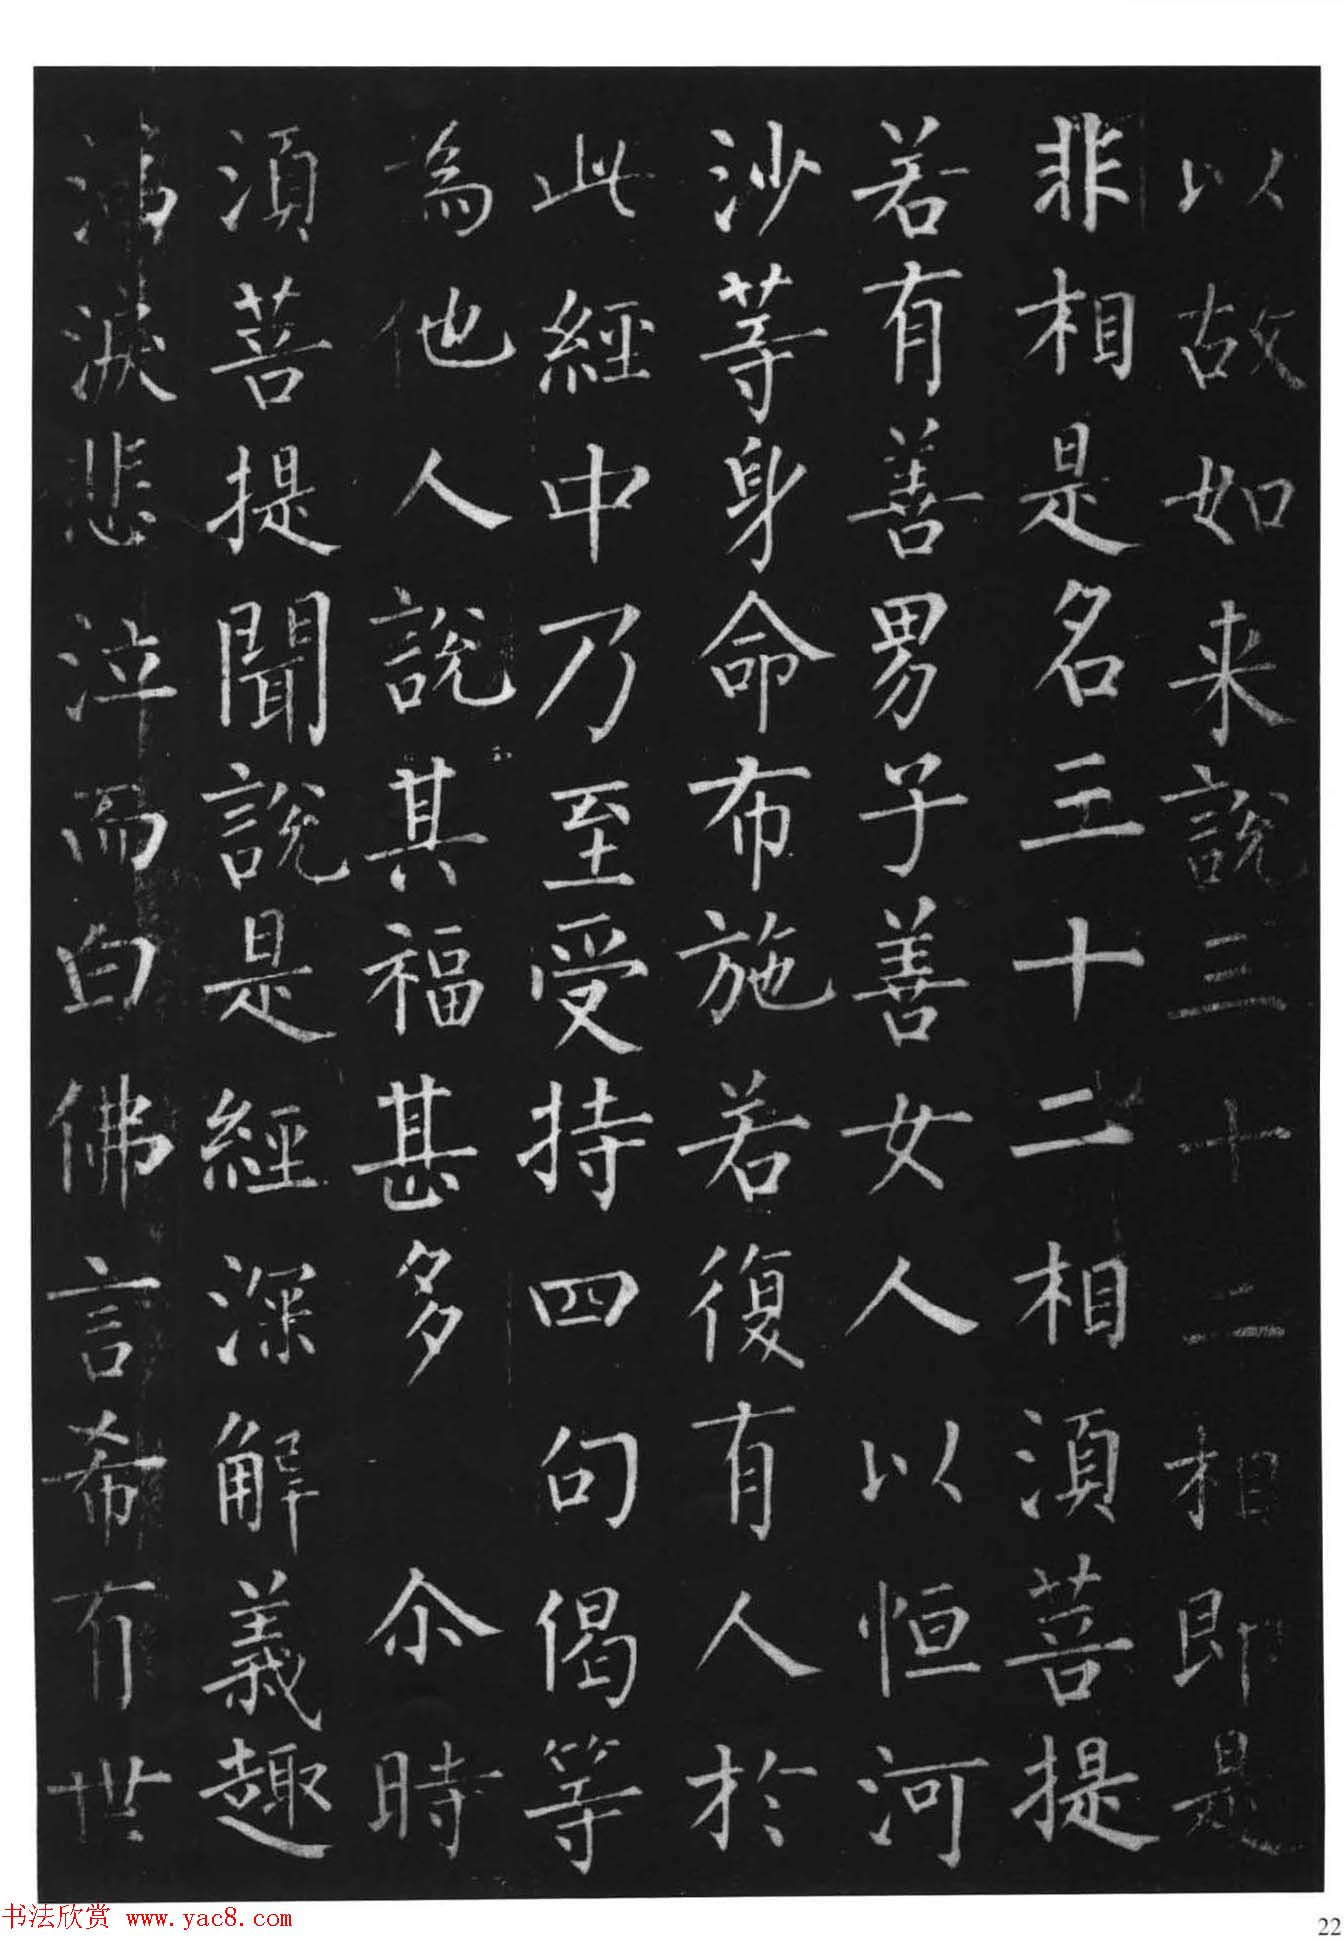 以故如来說三十二相即是
非相是名三十二相須菩提
若有善男子善女人以恒河
沙等身命布施若復有人於
此經中乃至受持四句偈等
為他人說其福甚多 尒時
須菩提聞說是經深解義趣
涕淚悲泣而白佛言希有世
书法欣赏 www.yac8.com
22